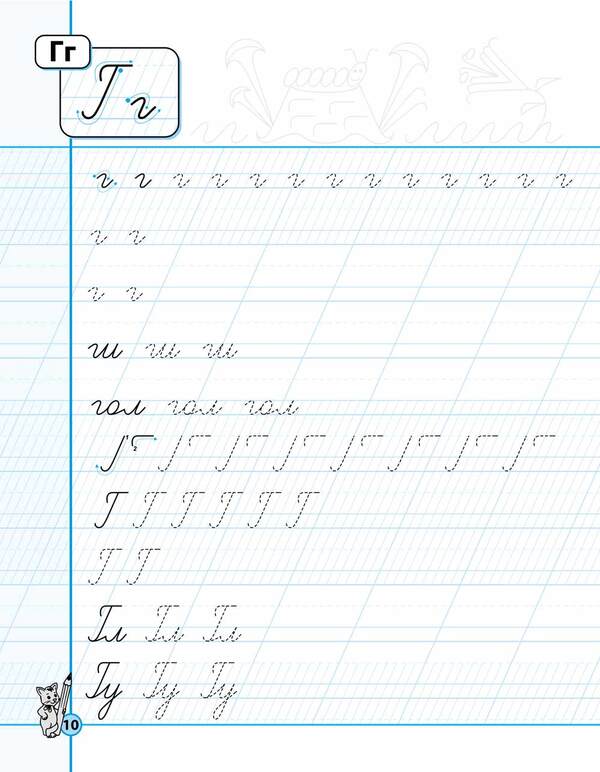 Гг
Г г
г г г г г г г г г г г г г
г г
г г
ги ги ги
гол гол гол
1 2
Г Г Г Г Г Г
Г Г
Гл Гл Гл
Гу Гу Гу
10